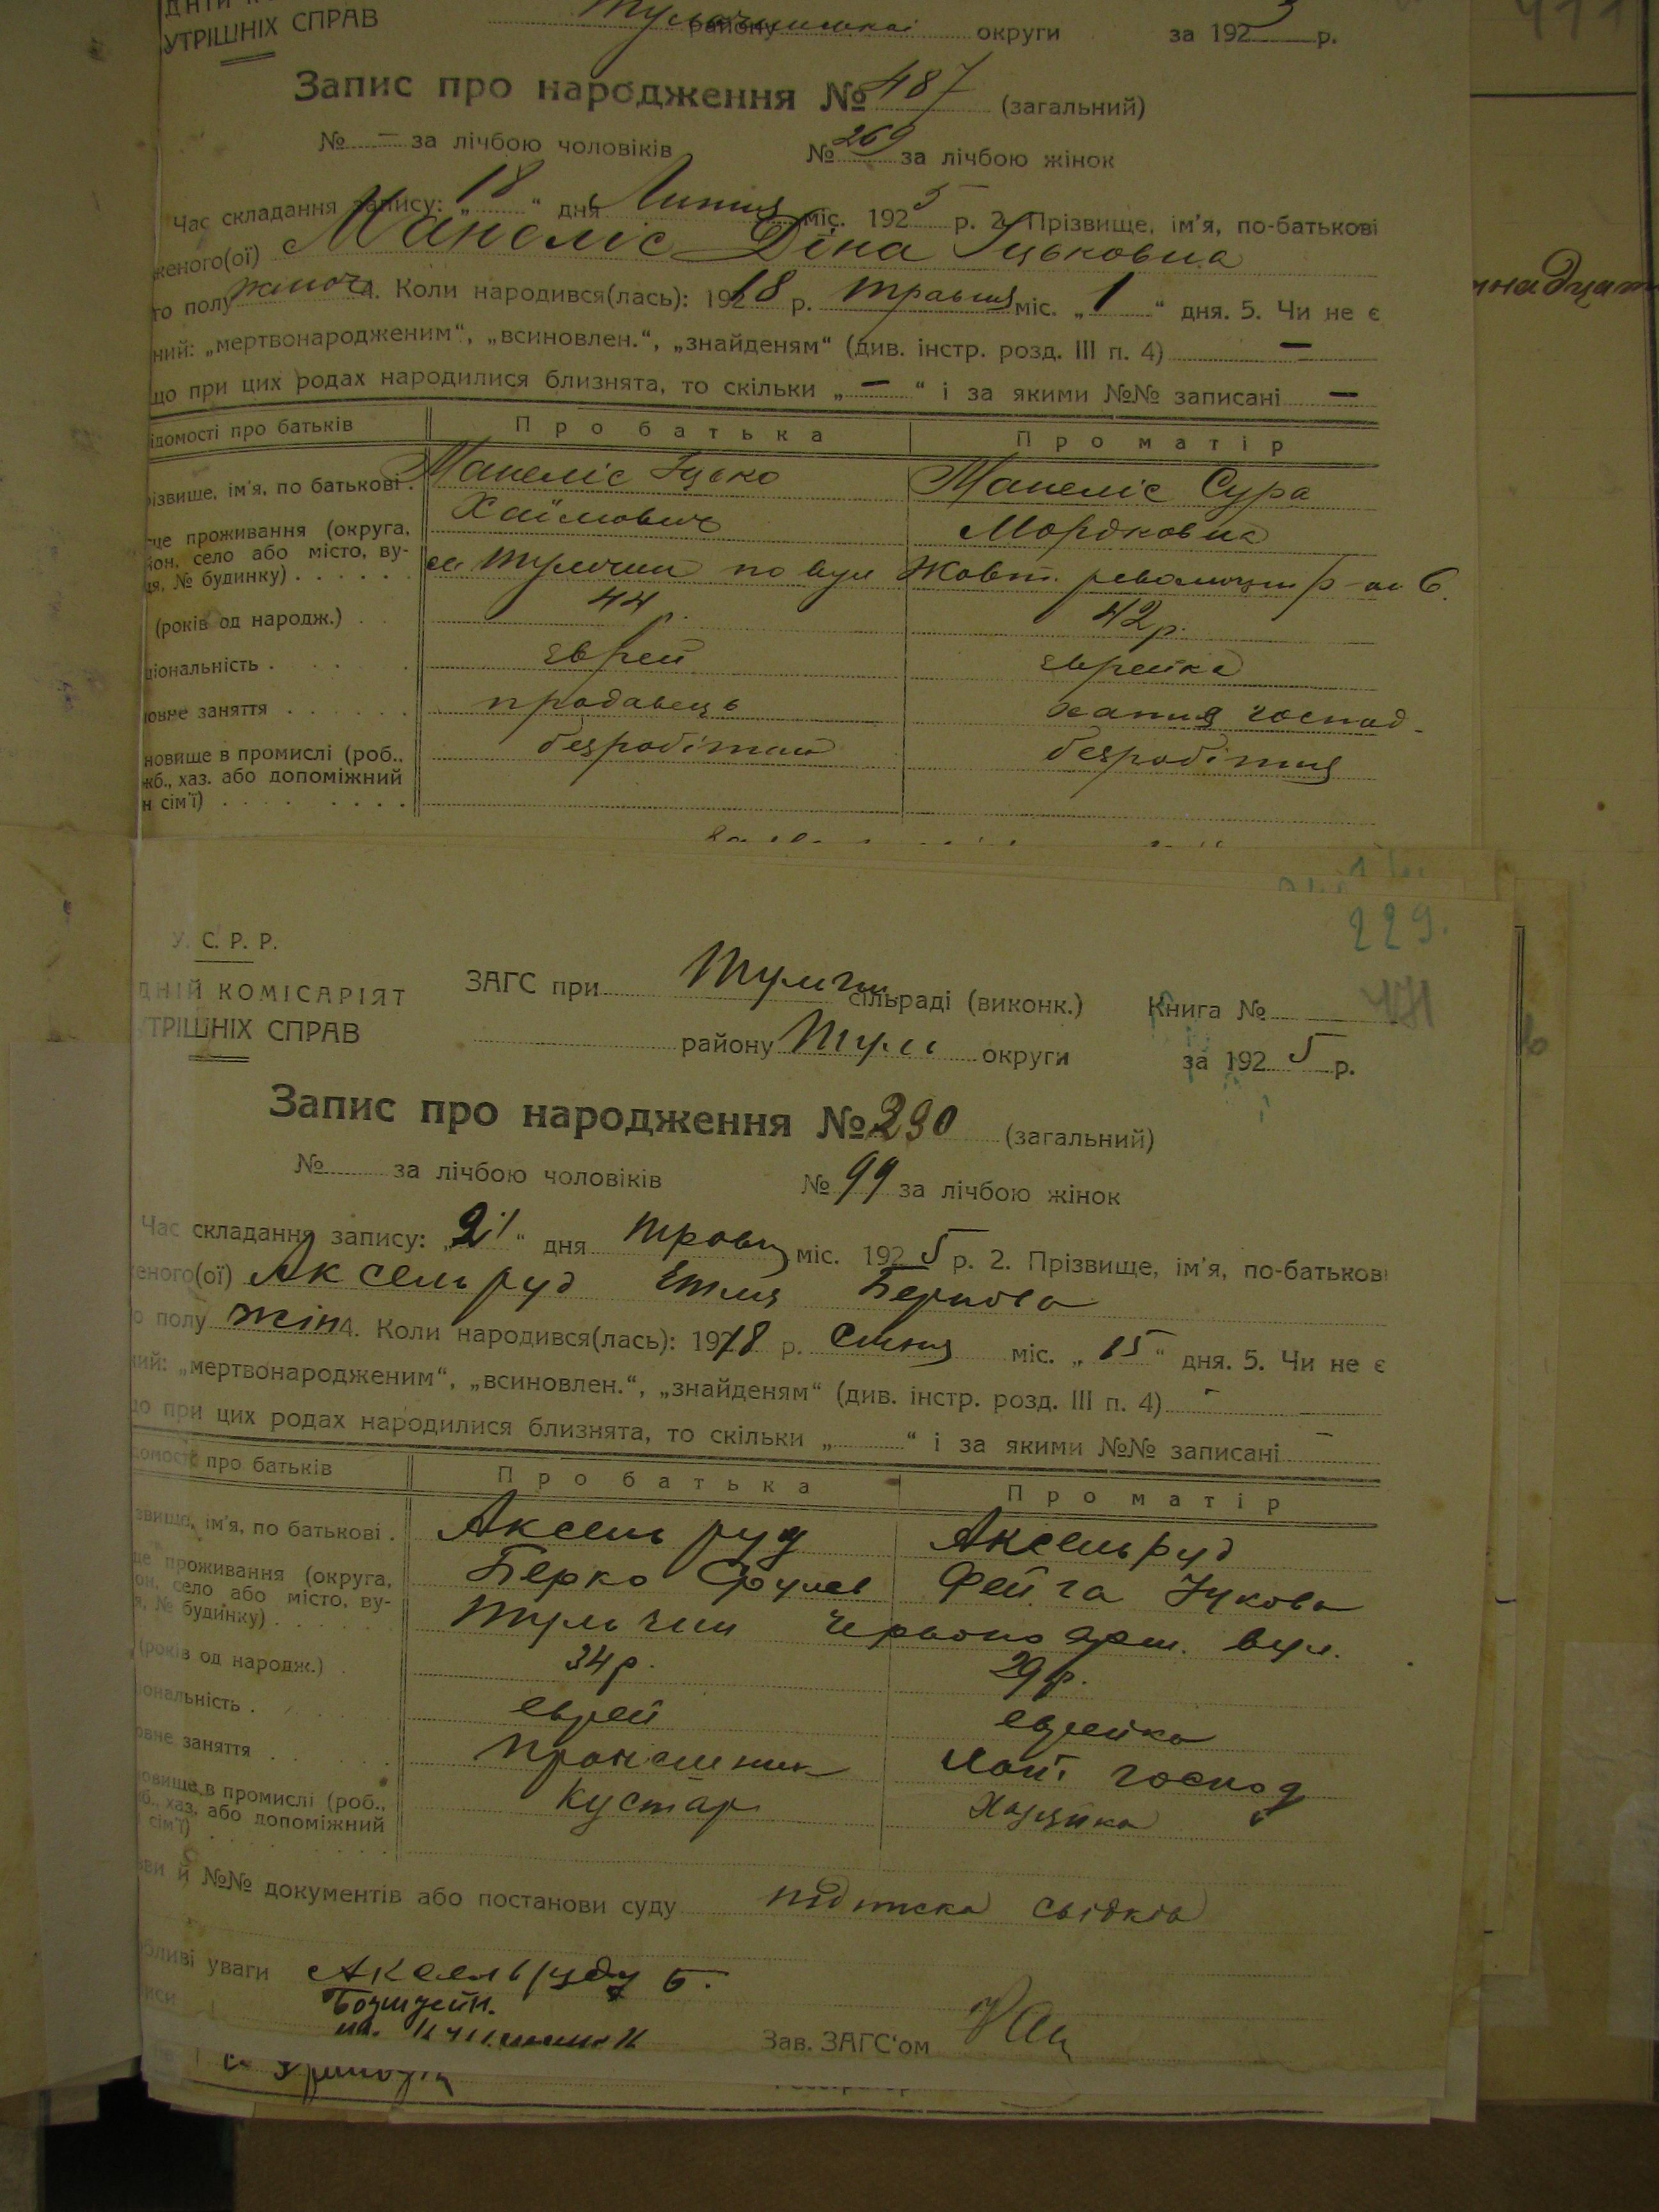 УТРІШНІХ СПРАВ
району округи за 192 5 р.
Запис про народження № 487 (загальний)
№ — за лічбою чоловіків № 269 за лічбою жінок
Час складання запису: „18“ дня Липня міс. 1925 р. 2. Прізвище, ім'я, по-батькові
женого(ої) Манеліс Діна Іцьковна
го полу жіноч. 4. Коли народився(лась): 1918 р. травня міс. „1“ дня. 5. Чи не є
ний: „мертвонародженим“, „всиновлен.“, „знайденям“ (див. інстр. розд. III п. 4) —
що при цих родах народилися близнята, то скільки „—“ і за якими №№ записані —
ідомості про батьків Про батька Про матір
різвище, ім'я, по батькові . Манеліс Іцько Манеліс Сура
Хаїмович Мордковна
це проживання (округа,
йон, село або місто, ву-
ця, № будинку) . . . . . . м Тульчин по вул Жовт. революции
(років од народж.) . 44 р. 42 р.
ціональність . . . . . еврей еврейка
ловне заняття . . . . . . продавець хатня господ.
новище в промислі (роб.,
жб., хаз. або допоміжний
н сім'ї) . . . . . . . . безробітний безробітня
229.
У. С. Р. Р.
ДНІЙ КОМІСАРІЯТ ЗАГС при Тульчин сільраді (виконк.) Книга № 471
УТРІШНІХ СПРАВ району Тульч округи за 192 5 р.
Запис про народження № 230 (загальний)
№ за лічбою чоловіків № 99 за лічбою жінок
Час складання запису: „21“ дня травня міс. 1925 р. 2. Прізвище, ім'я, по-батькові
женого(ої) Аксельруд Етля Беркова
о полу жін 4. Коли народився(лась): 1918 р. січня міс. „15“ дня. 5. Чи не є
ний: „мертвонародженим“, „всиновлен.“, „знайденям“ (див. інстр. розд. III п. 4) —
що при цих родах народилися близнята, то скільки „ “ і за якими №№ записані —
домості про батьків Про батька Про матір
звище, ім'я, по батькові . Аксельруд Аксельруд
Берко Срулев Фейга Іцкова
це проживання (округа,
он, село або місто, ву-
я, № будинку) . . . . . . Тульчин Червоноарм. вул.
(років од народж.) . 34 р. 29 р.
іональність . еврей еврейка
овне заняття . . . . . . промисник хат. господ
овище в промислі (роб.,
б., хаз. або допоміжний
сім'ї) . . . . . . . кустар хазяйка
ви й №№ документів або постанови суду підписка свідків
бливі уваги Аксельруду Б.
иси
Зав. ЗАГС'ом